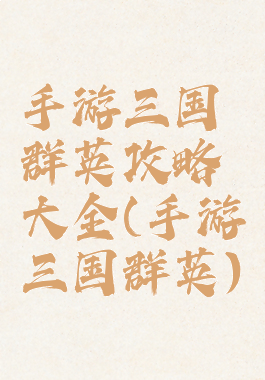 手游三国
群英攻略
大全(手游
三国群英)